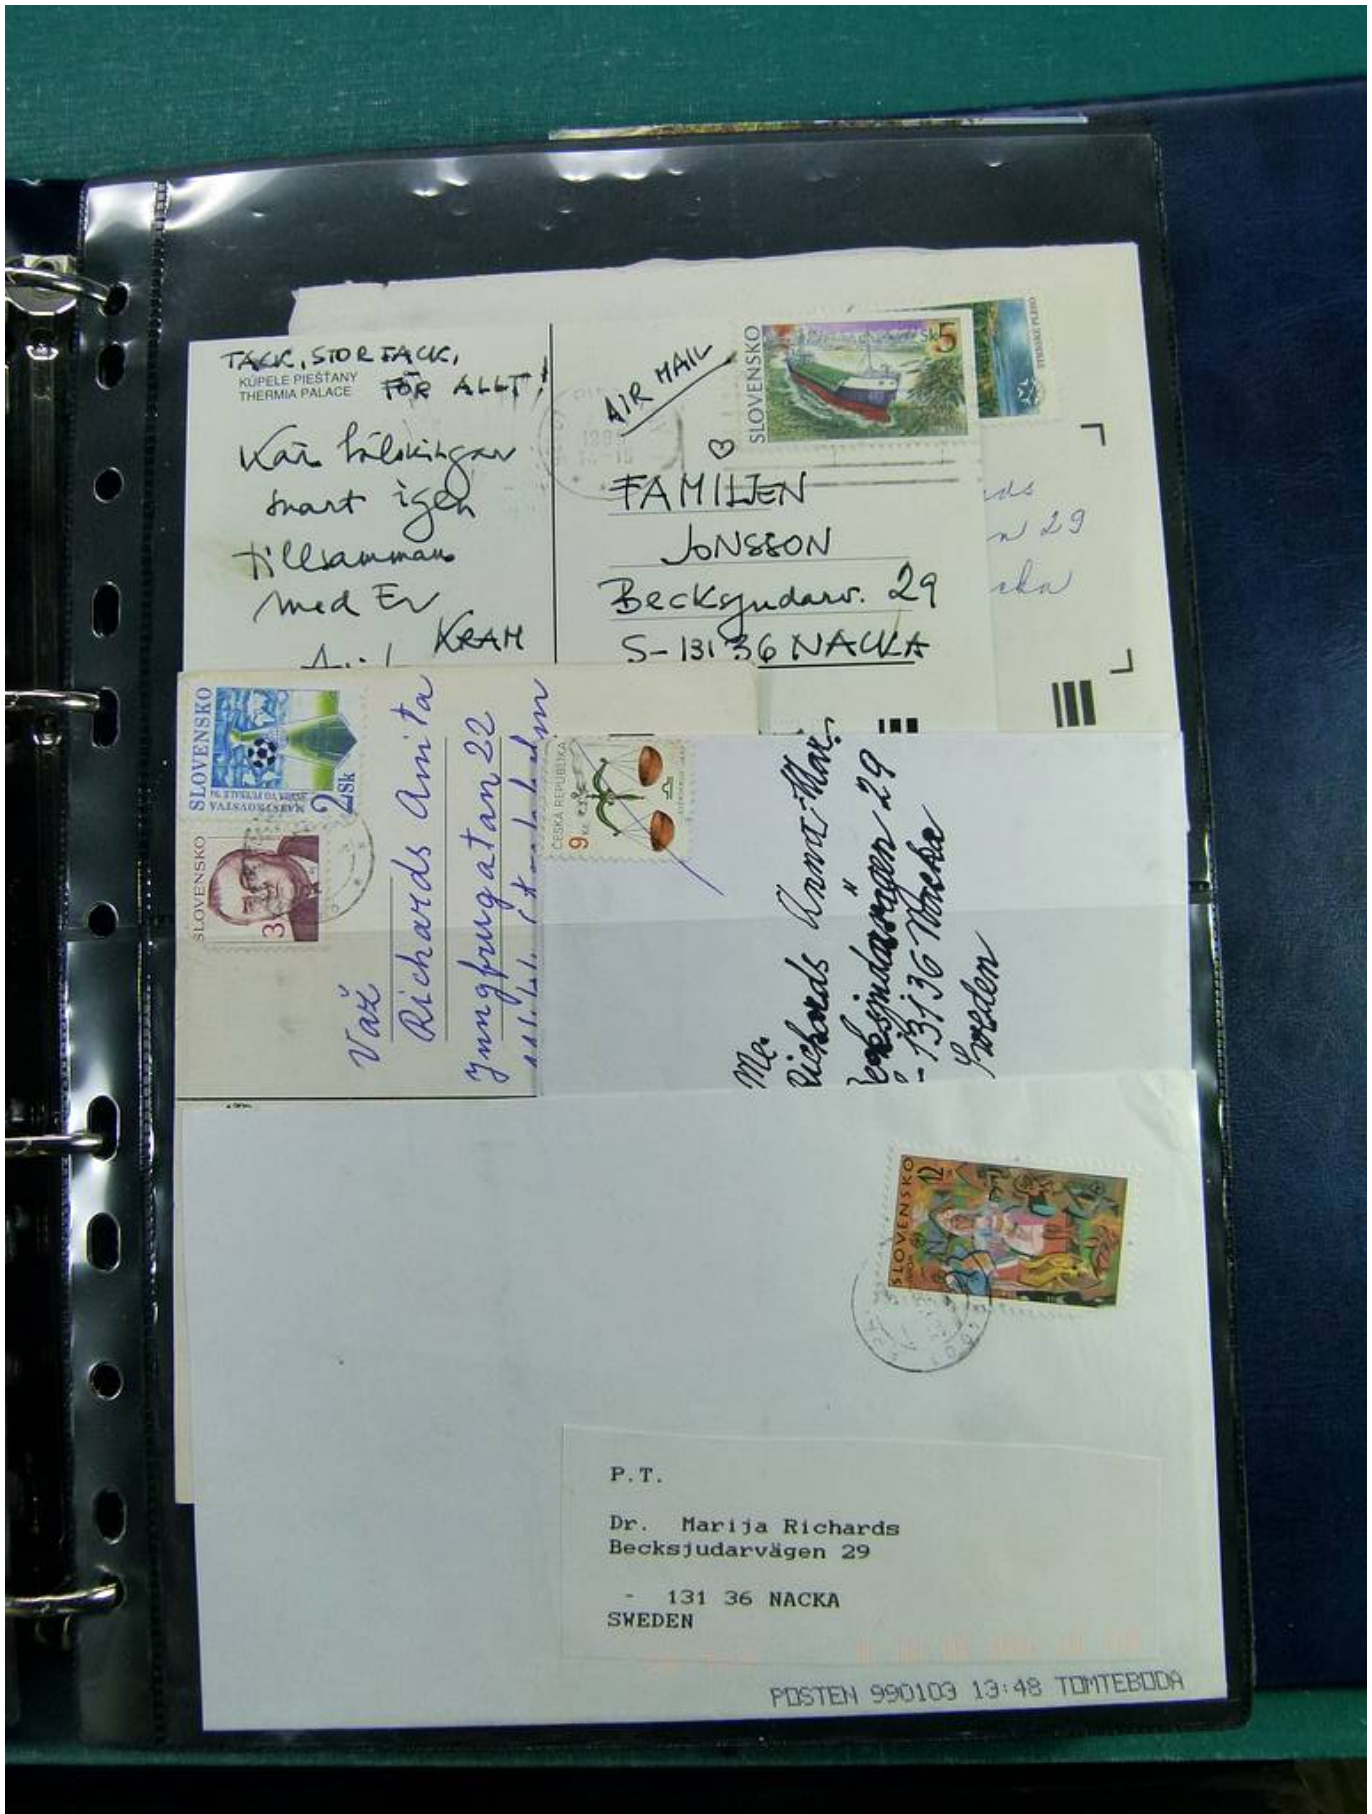 TACK, STOR TACK,
KÚPELE PIEŠŤANY
THERMIA PALACE
FÖR ALLT!
Kära hälsningar
snart igen
tillsammans
med Er
KRAM
AIR MAIL
SLOVENSKO
Sk 5
FAMILJEN
JONSSON
Becksjudarv. 29
S-131 36 NACKA
n 29
cka
SLOVENSKO
2 Sk
MAJSTROVSTVÁ
SVETA VO FUTBALE '94
SLOVENSKO
3
Váž
Richards Anita
Jungfrugatan 22
ČESKÁ REPUBLIKA
9 Kč
Richards Anna-Mar
29
- 131 36 Nacka
Sweden
SLOVENSKO
12
P.T.
Dr. Marija Richards
Becksjudarvägen 29
- 131 36 NACKA
SWEDEN
POSTEN 990103 13:48 TOMTEBODA